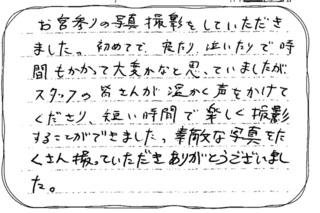 お宮参りの写真撮影をしていただき
ました。初めてで、寝たり、泣いたりで時
間もかかって大変かなと思っていましたが
スタッフの皆さんが温かく声をかけて
くださり、短い時間で楽しく撮影
することができました。素敵な写真をた
くさん撮っていただきありがとうございまし
た。